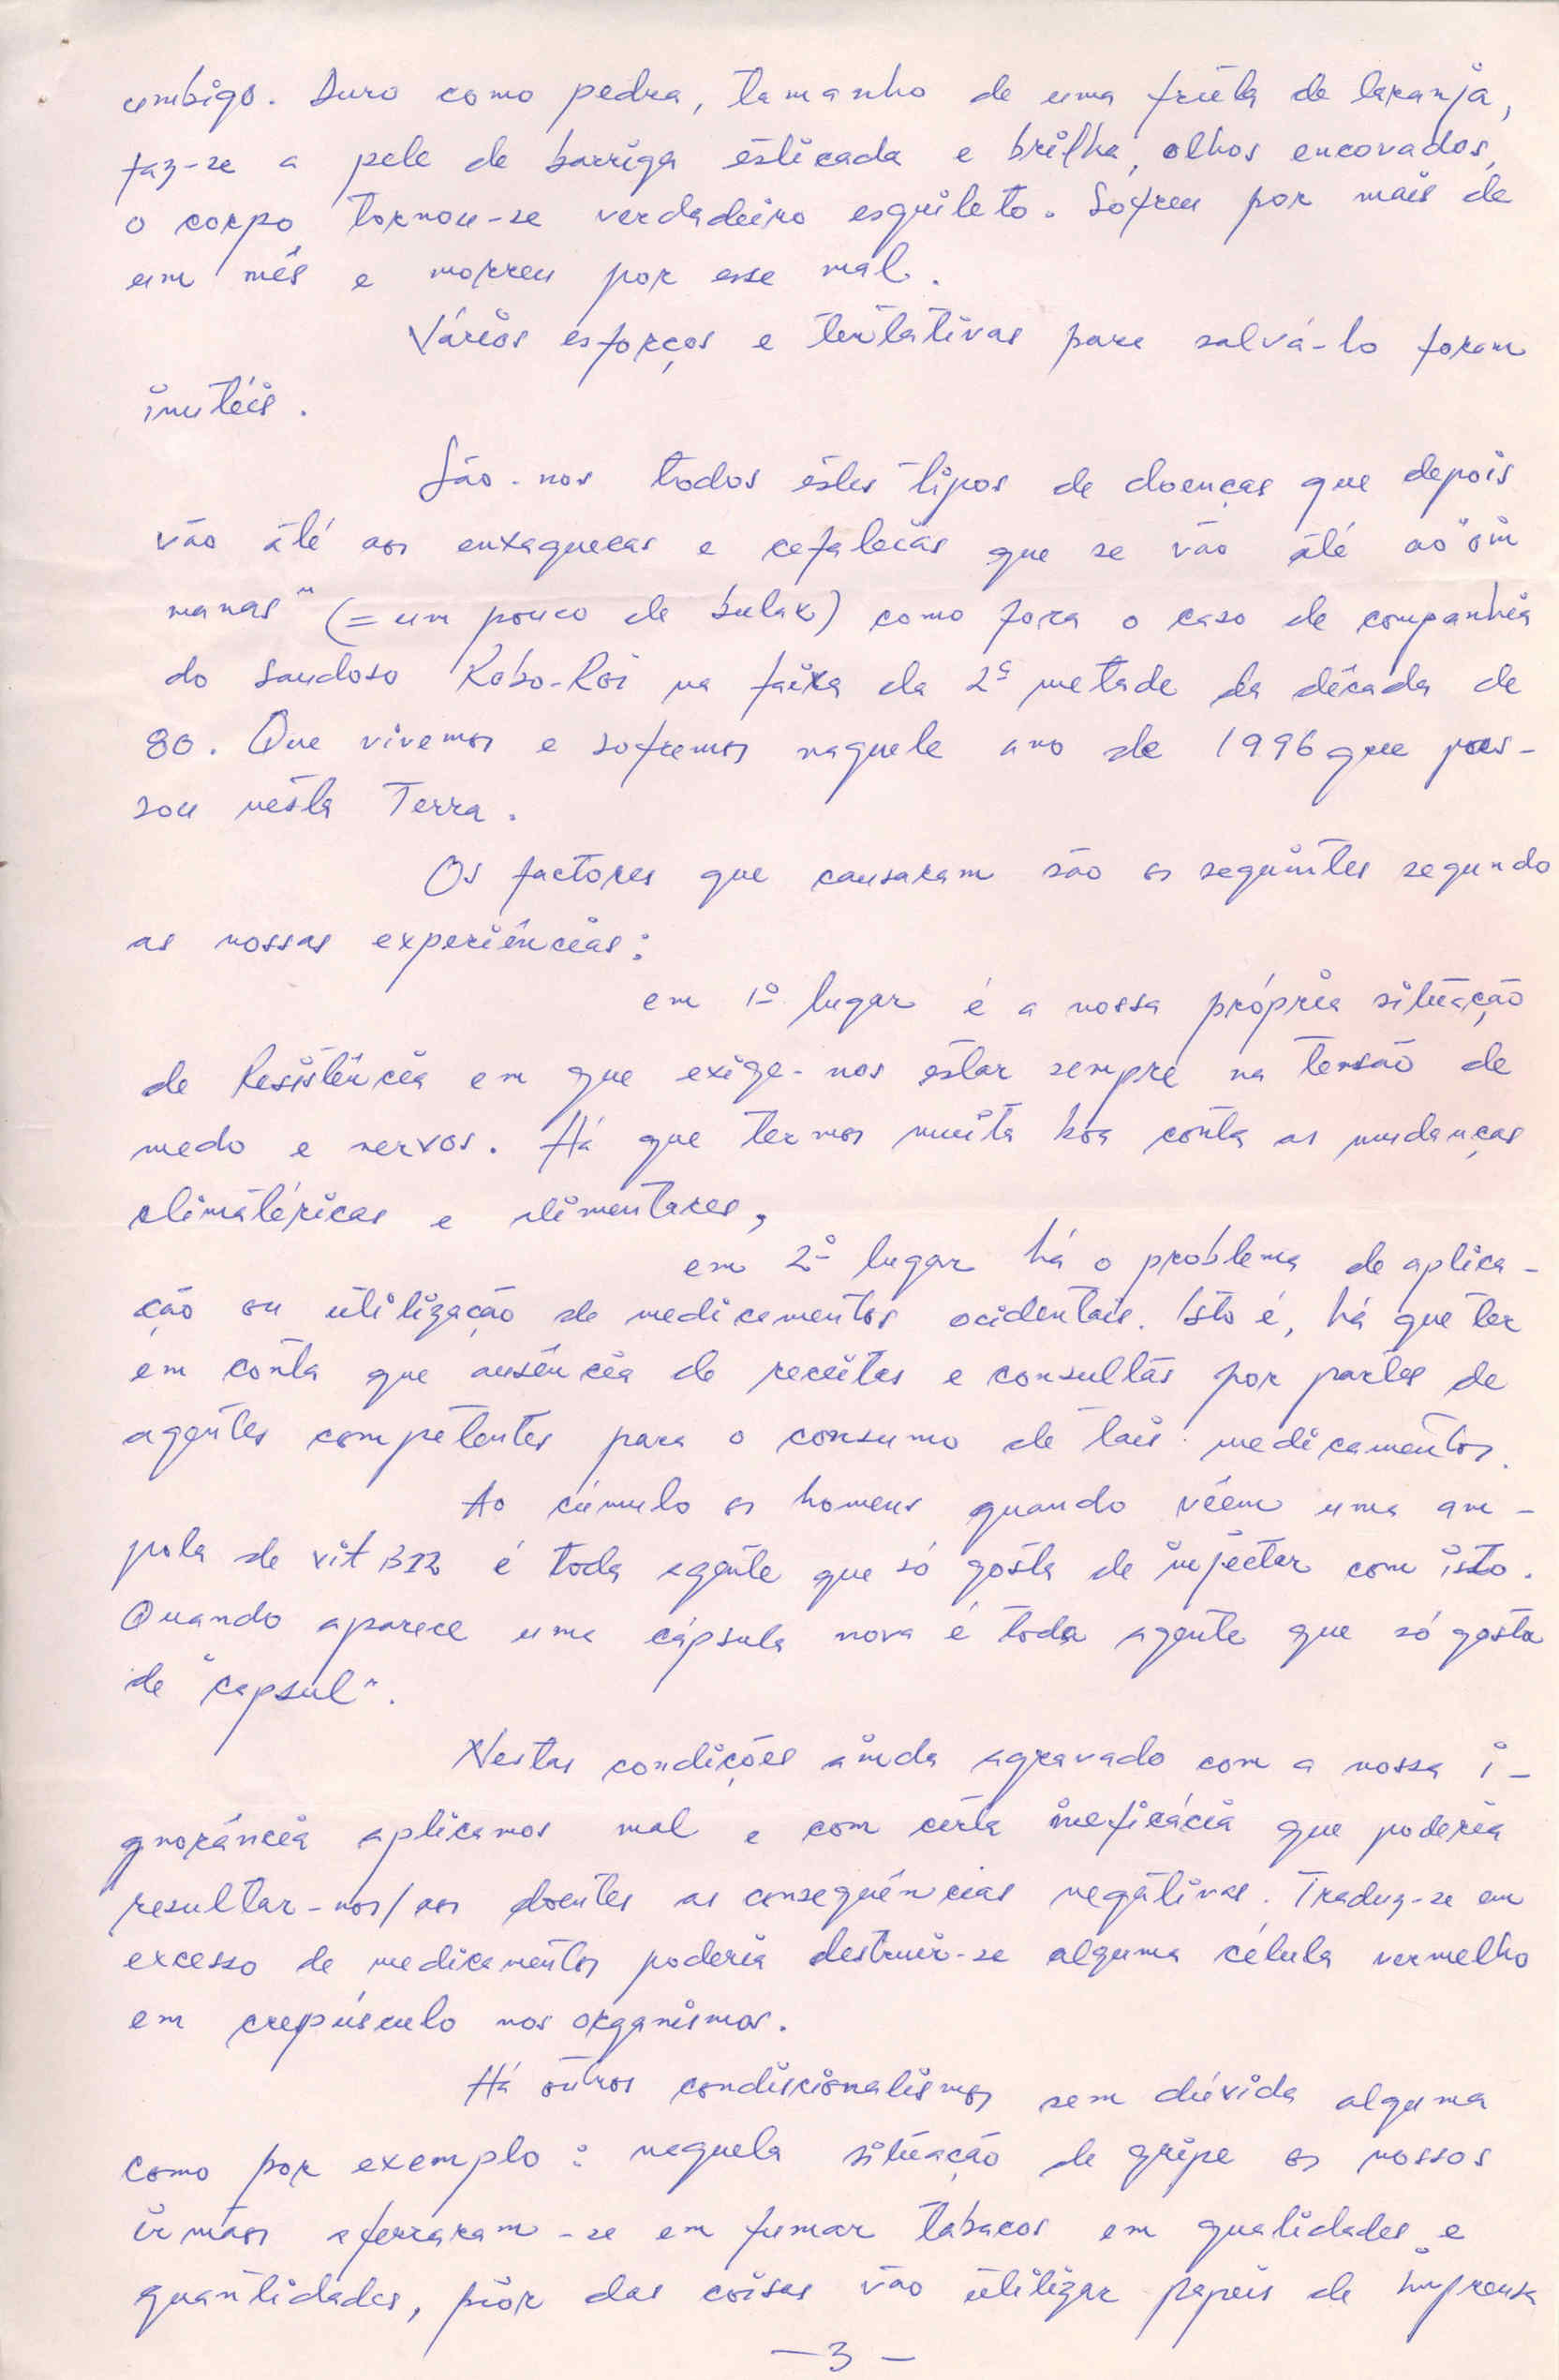 umbigo. Duro como pedra, tamanho de uma fruta de laranja,
faz-se a pele de barriga esticada e brilha, olhos encovados,
o corpo tornou-se verdadeiro esquileto. Sofreu por mais de
um mês e morreu por esse mal.
Vários esforços e tentativas para salvá-lo foram
inutéis.
São-nos todos estes tipos de doenças que depois
vão até aos enxaquecas e cefaleias que se vão até ao "oin
manas" (= um pouco de bulak) como fora o caso de companhia
do saudoso Kobo-Roi na faixa da 2ª metade da década de
80. Que vivemos e sofremos naquele ano de 1996 que pas-
sou nesta Terra.
Os factores que causaram são os seguintes segundo
as nossas experiências:
em 1º lugar é a nossa própria situação
de Resistência em que exige-nos estar sempre na tensão de
medo e nervos. Há que termos muita boa conta as mudanças
climatéricas e alimentares,
em 2º lugar há o problema de aplica-
ção ou utilização de medicamentos ocidentais. Isto é, há que ter
em conta que ausência de receitas e consultas por partes de
agentes competentes para o consumo de tais medicamentos.
Ao cúmulo os homens quando vêem uma am-
pola de vit B12 é toda agente que só gosta de injectar com isto.
Quando aparece uma cápsula nova é toda agente que só gosta
de "capsul".
Nestas condições ainda agravado com a nossa i-
gnorância aplicamos mal e com certa ineficácia que poderia
resultar-nos/aos doentes as consequências negativas. Traduz-se em
excesso de medicamentos poderia destruir-se alguma célula vermelho
em crepúsculo nos organismos.
Há outros condicionalismos sem dúvida alguma
como por exemplo: naquela situação de gripe os nossos
irmãos aferraram-se em fumar tabacos em qualidades e
quantidades, piór das coisas vão utilizar papeis de imprensa
-3-